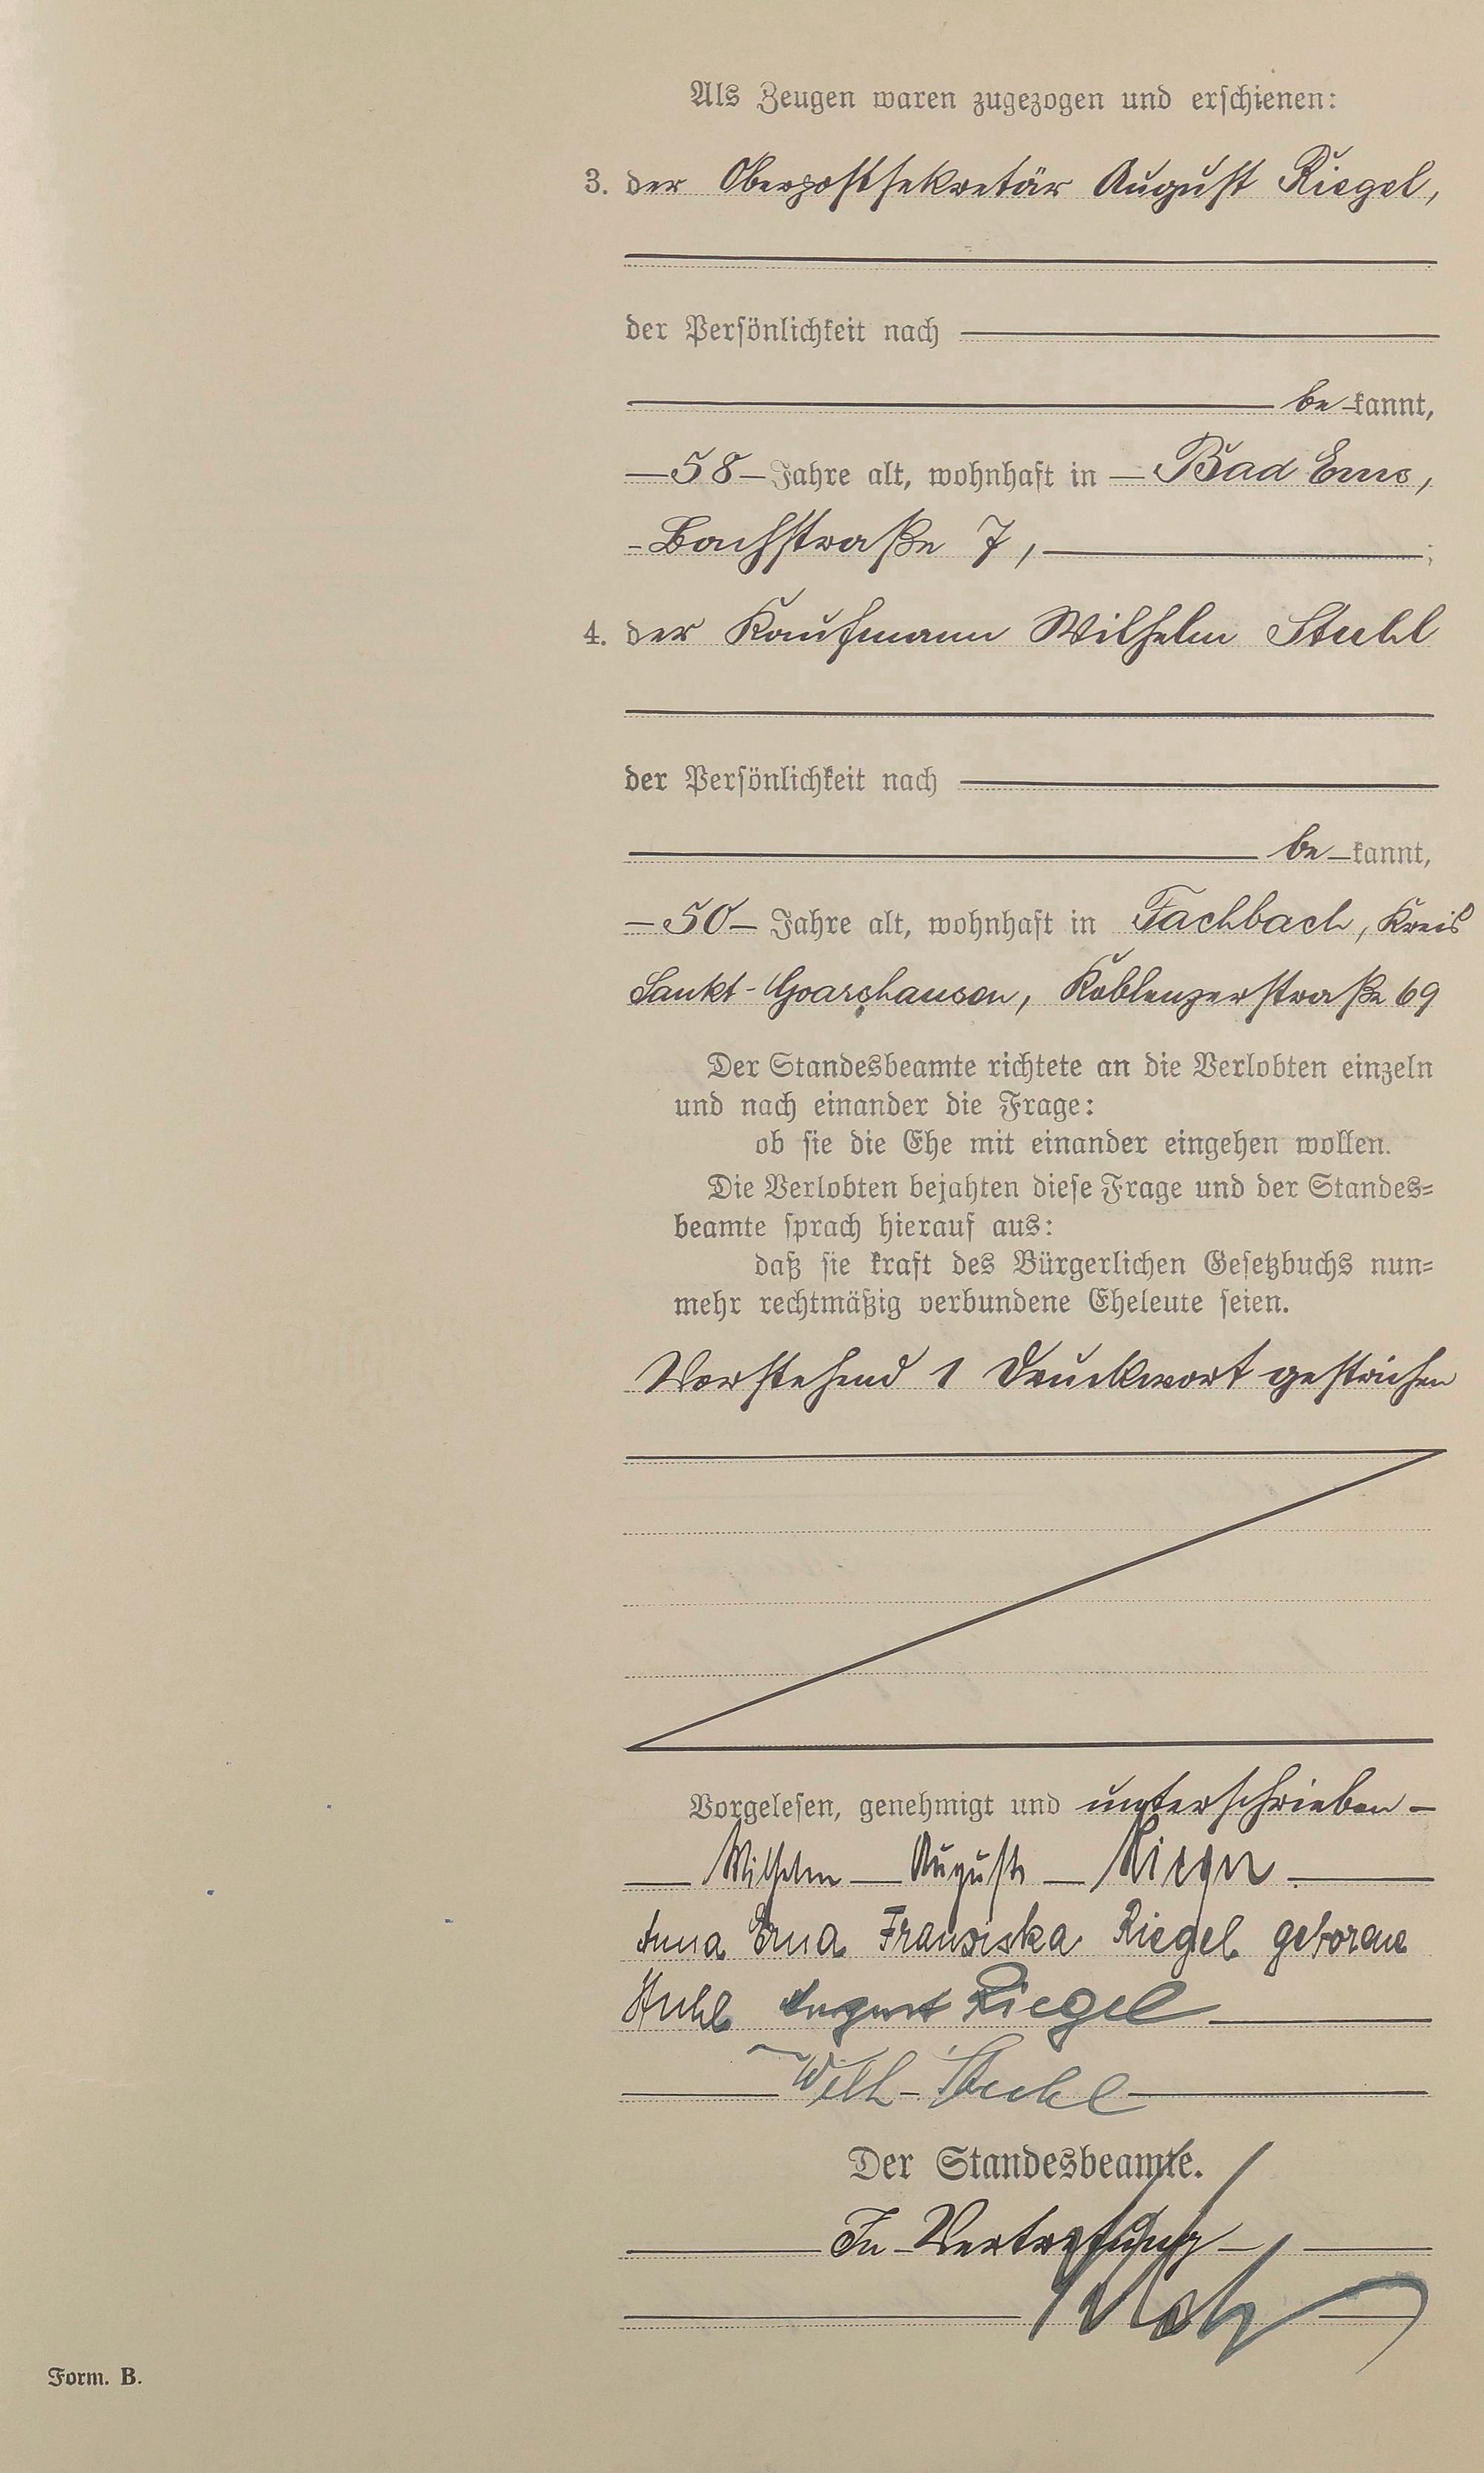 Als Zeugen waren zugezogen und erschienen:
3. der Oberpostsekretär August Riegel,
der Persönlichkeit nach
bekannt,
58 Jahre alt, wohnhaft in Bad Ems,
Bachstraße 7,
4. der Kaufmann Wilhelm Stuhl
der Persönlichkeit nach
bekannt,
50 Jahre alt, wohnhaft in Fachbach, Kreis
Sankt-Goarshausen, Koblenzerstraße 69
Der Standesbeamte richtete an die Verlobten einzeln
und nach einander die Frage:
ob sie die Ehe mit einander eingehen wollen.
Die Verlobten bejahten diese Frage und der Standes=
beamte sprach hierauf aus:
daß sie kraft des Bürgerlichen Gesetzbuchs nun=
mehr rechtmäßig verbundene Eheleute seien.
Vorstehend 1 Druckwort gestrichen
Vorgelesen, genehmigt und unterschrieben
Wilhelm August Riegel
Anna Erna Franziska Riegel geborene
Stuhl August Riegel
Wilh. Stuhl
Der Standesbeamte.
In Vertretung
Form. B.